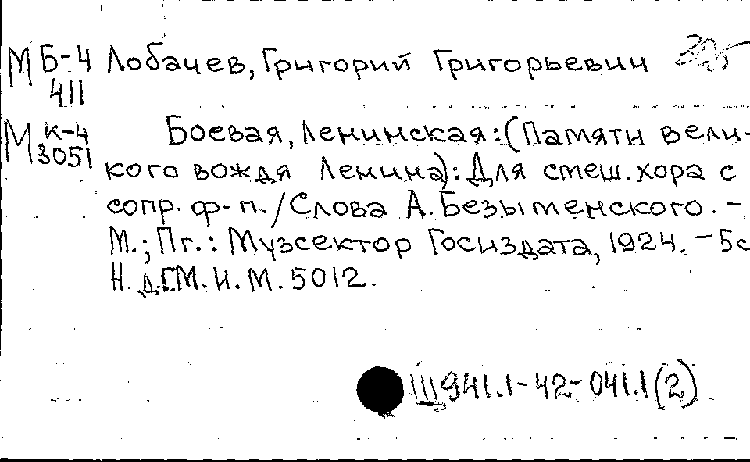 М Б-4 Лобачев, Григорий Григорьевич
411
М К-4 Боевая, Ленинская: (Памяти вели-
3051 кого вождя Ленина): Для смеш. хора с
сопр. ф-п. / Слова А. Безыменского. -
М.; Пг.: Музсектор Госиздата, 1924. - 5с
Н. д. Г.М.И.М. 5012.
Щ941.1-42-041.1(2)